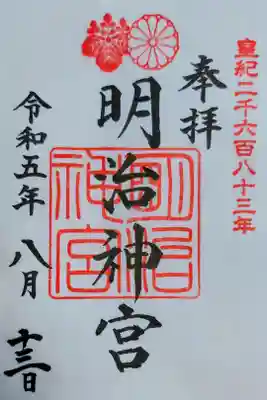 皇紀二千六百八十三年
奉拝
明治神宮
明治神宮
令和五年 八月 十三日